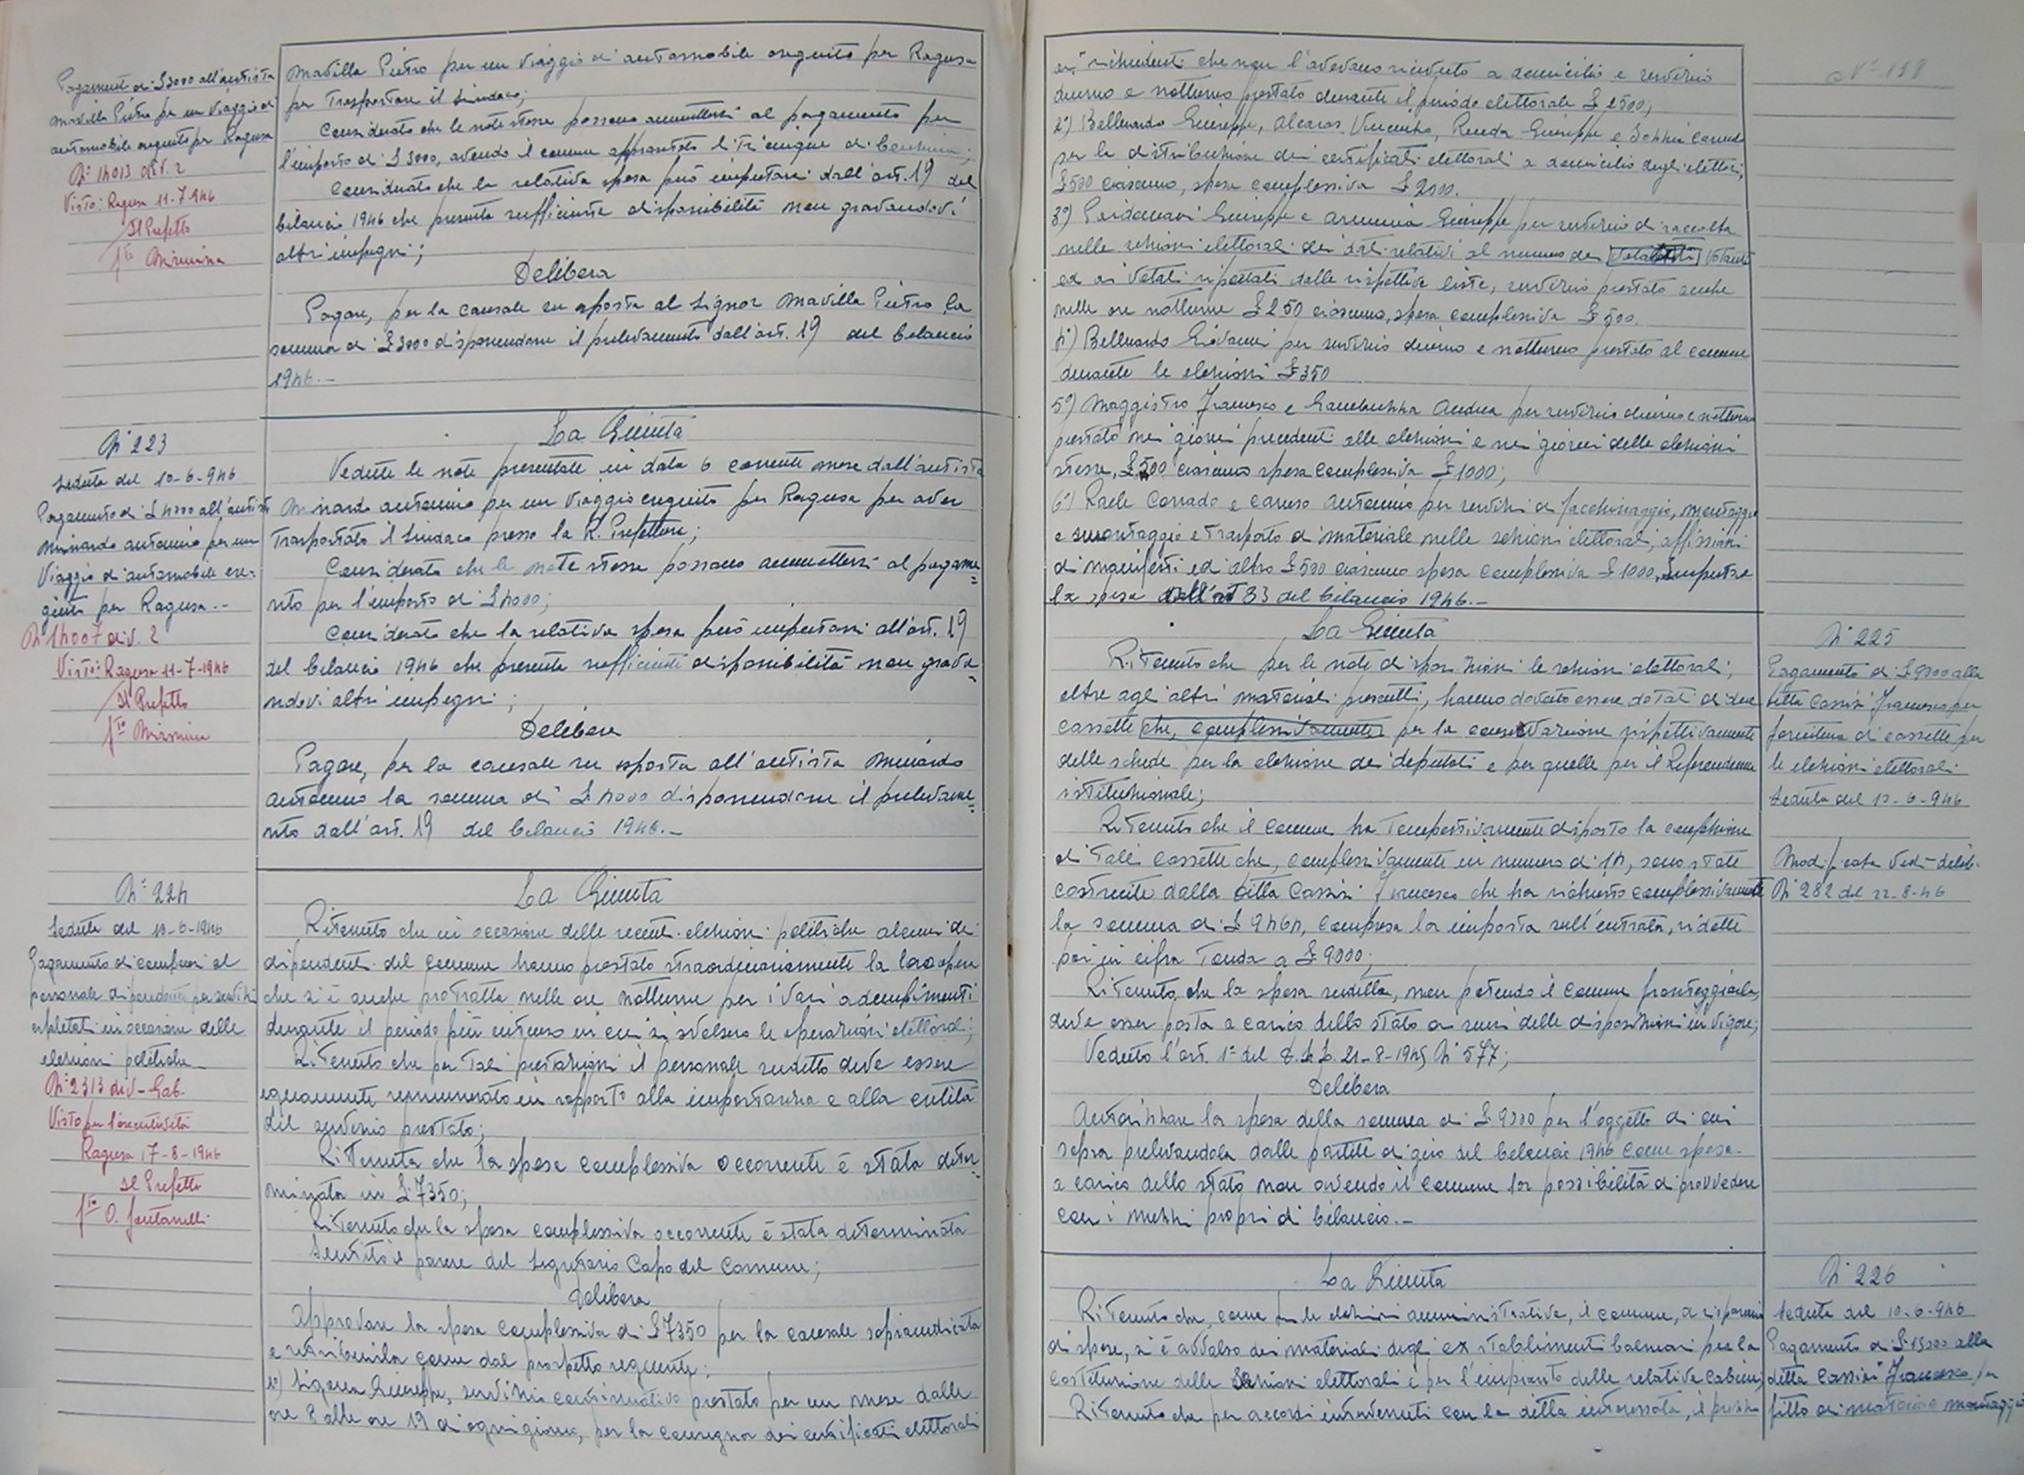 Pagamento di £ 3000 all'autista
Mavilla Pietro per un viaggio di
automobile eseguito per Ragusa
N° 14013 div. 2
Visto: Ragusa 11-7-946
Il Prefetto
Fto Mirmina
Mavilla Pietro per un viaggio di automobile eseguito per Ragusa
per trasportare il Sindaco;
Considerato che le note stesse possono ammettersi al pagamento per
l'importo di £ 3000, avendo il comune approntato litri cinque di benzina;
Considerato che la relativa spesa può imputarsi dall'art. 19 del
bilancio 1946 che presenta sufficiente disponibilità non gravandovi
altri impegni;
Delibera
Pagare, per la causale su esposta al Signor Mavilla Pietro la
somma di £ 3000 disponendone il prelevamento dall'art. 19 del bilancio
1946.-
N° 223
Seduta del 10-6-946
Pagamento di £ 4000 all'autista
Minardo Antonino per un
viaggio di automobile ese-
guito per Ragusa.-
N. 14007 div. 2
Visto: Ragusa 11-7-1946
Il Prefetto
Fto Mirmina
La Giunta
Vedute le note presentate in data 6 corrente mese dall'autista
Minardo Antonino per un viaggio eseguito per Ragusa per aver
trasportato il Sindaco presso la R. Prefettura;
Considerato che le note stesse possono ammettersi al pagame=
nto per l'importo di £ 4000;
Considerato che la relativa spesa può imputarsi all'art. 19
del bilancio 1946 che presenta sufficiente disponibilità non grava=
ndovi altri impegni;
Delibera
Pagare, per la causale su esposta all'autista Minardo
Antonino la somma di £ 4000 disponendone il prelevame=
nto dall'art. 19 del bilancio 1946.-
N° 224
Seduta del 10-6-1946
Pagamento di compensi al
personale dipendente per servizi
espletati in occasione delle
elezioni politiche
N° 2313 div - Gab.
Visto per l'esecutività
Ragusa 17-8-1946
Il Prefetto
Fto O.
La Giunta
Ritenuto che in occasione delle recenti elezioni politiche alcuni di
dipendenti del Comune hanno prestato straordinariamente la loro opera
che si è anche protratta nelle ore notturne per i vari adempimenti
durante il periodo più intenso in cui si svolsero le operazioni elettorali;
Ritenuto che per tali prestazioni il personale suddetto deve essere
equamente remunerato in rapporto alla importanza e alla entità
del servizio prestato;
Ritenuta che la spesa complessiva occorrente è stata deter=
minata in £ 7350;
Ritenuto che la spesa complessiva occorrente è stata determinata
Sentito il parere del Segretario Capo del Comune;
Delibera
Approvare la spesa complessiva di £ 7350 per la causale sopraindicata
e retribuirla come dal prospetto seguente:
1°) Giuseppe, servizio continuativo prestato per un mese dalle
ore 8 alle ore 19 di ogni giorno, per la consegna dei certificati elettorali
N° 158
ai richiedenti che non l'avevano ricevuto a domicilio e servizio
diurno e notturno prestato durante il periodo elettorale £ 2500;
2°) Belluardo Giuseppe, Vincenzo, Giuseppe e
per la distribuzione dei certificati elettorali a domicilio degli elettori,
£ 500 ciascuno, spesa complessiva £ 2000.
3°) Giuseppe e Giuseppe per servizio di raccolta
nelle sezioni elettorali dei dati relativi al numero dei votanti
ed ai votati riportati dalle rispettive liste, servizio prestato anche
nelle ore notturne £ 250 ciascuno, spesa complessiva £ 500.
4°) Belluardo Giovanni per servizio diurno e notturno prestato al comune
durante le elezioni £ 350
5°) Maggistro Francesco e Andrea per servizio diurno e notturno
prestato nei giorni precedenti alle elezioni e nei giorni delle elezioni
stesse, £ 500 ciascuno spesa complessiva £ 1000;
6°) Corrado e Caruso Antonino per servizi di facchinaggio, montaggio
e smontaggio e trasporto di materiale nelle sezioni elettorali, affissioni
di manifesti ed altro £ 500 ciascuno spesa complessiva £ 1000, imputare
la spesa dall'art 33 del bilancio 1946.-
La Giunta
Ritenuto che per le note disposizioni le sezioni elettorali,
oltre agli altri materiali prescritti, hanno dovuto essere dotati di due
cassette che, complessivamente per la conservazione rispettivamente
delle schede per la elezione dei deputati e per quelle per il Referendum
istituzionale;
Ritenuto che il Comune ha tempestivamente disposto la confezione
di tali cassette che, complessivamente in numero di 14, sono state
costruite dalla ditta Cassisi Francesco che ha richiesto complessivamente
la somma di £ 9464, compresa la imposta sull'entrata, ridotte
poi in cifra tonda a £ 9000;
Ritenuto che la spesa suddetta, non potendo il Comune fronteggiarla,
deve esser posta a carico dello stato ai sensi delle disposizioni in vigore;
Veduto l'art. 1° del D.L.L. 21-8-1945 N° 577;
Delibera
Autorizzare la spesa della somma di £ 9000 per l'oggetto di cui
sopra prelevandola dalle partite di giro del bilancio 1946 come spesa
a carico dello stato non avendo il Comune la possibilità di provvedere
con i mezzi propri di bilancio.-
N° 225
Pagamento di £ 9000 alla
ditta Cassisi Francesco per
fornitura di cassette per
le elezioni elettorali
Seduta del 10-6-946
Modificata Vedi delib.
N° 282 del 22-8-46
La Giunta
Ritenuto che, come per le elezioni amministrative, il comune, a risparmio
di spese, si è avvalso dei materiali degli ex stabilimenti balneari per la
costituzione delle Sezioni elettorali e per l'impianto delle relative cabine;
Ritenuto che per accordi intervenuti con la ditta interessata, il prezzo
N° 226
Seduta del 10-6-946
Pagamento di £ 15000 alla
ditta Cassisi Francesco per
fitto di materiale montaggio